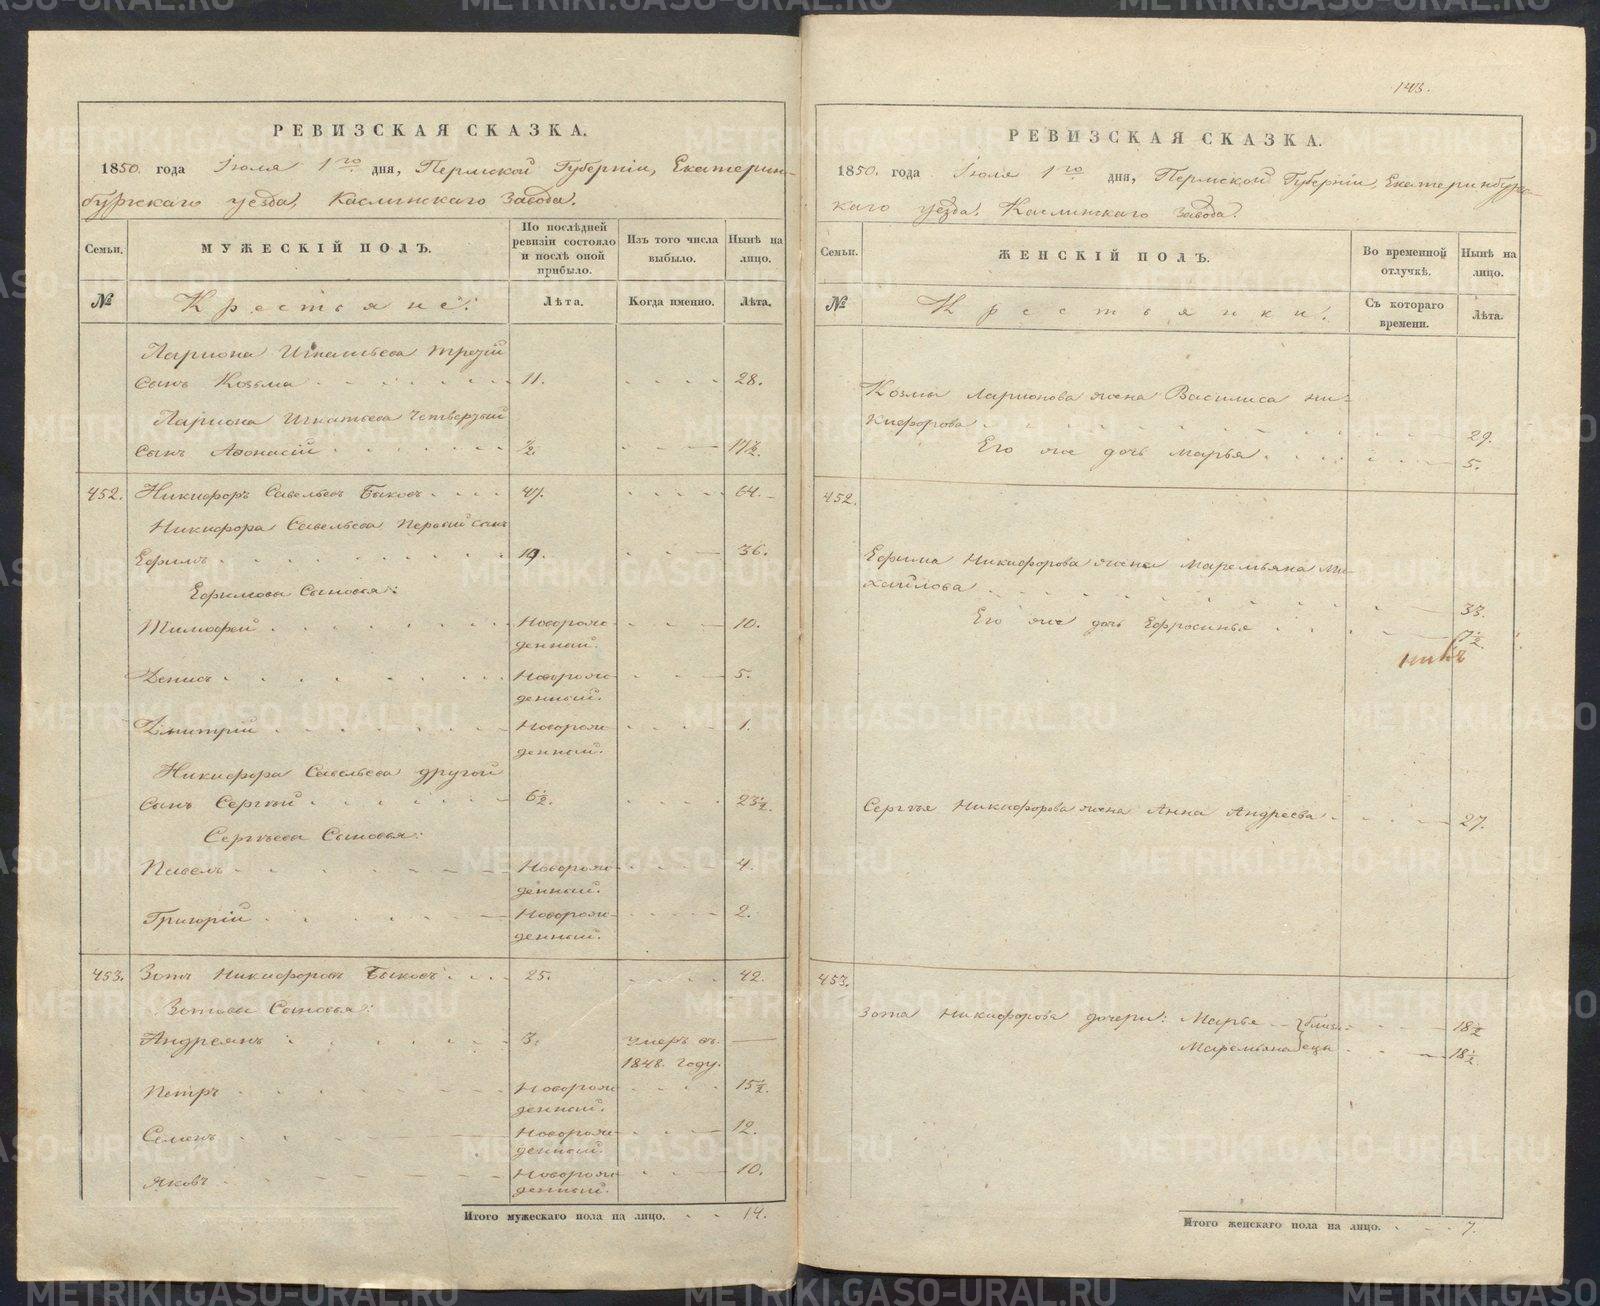 РЕВИЗСКАЯ СКАЗКА.
1850. года Іюля 1го дня, Пермской Губерніи, Екатерин-
бургскаго уѣзда, Каслинскаго Завода.
Семьи.
МУЖЕСКІЙ ПОЛЪ.
По послѣдней
ревизіи состояло
и послѣ оной
прибыло.
Изъ того числа
выбыло.
Нынѣ на
лицо.
№
Крестьяне:
Лѣта.
Когда именно.
Лѣта.
Лариона Игнатьева третій
сынъ Козьма 11. 28.
Лариона Игнатьева четвертый
сынъ Афонасій ½. 17½.
452. Никифоръ Савельевъ Быковъ 47. 64.
Никифора Савельева первый сынъ
Ефимъ 19. 36.
Ефимова Сыновья:
Тимофей Новорож- 10.
денный.
Денисъ Новорож- 5.
денный.
Дмитрій Новорож- 1.
денный.
Никифора Савельева другой
сынъ Сергѣй 6½. 23½.
Сергѣева Сыновья:
Павелъ Новорож- 4.
денный.
Григорій Новорож- 2.
денный.
453. Зотъ Никифоровъ Быковъ 25. 42.
Зотова Сыновья:
Андреянъ 3. умеръ въ
1848. году.
Петръ Новорож- 15½.
денный.
Семенъ Новорож- 12.
денный.
Яковъ Новорож- 10.
денный.
Итого мужескаго пола на лицо. 14.
143.
РЕВИЗСКАЯ СКАЗКА.
1850. года Іюля 1го дня, Пермской Губерніи, Екатеринбургс-
каго уѣзда, Каслинскаго завода.
Семьи.
ЖЕНСКІЙ ПОЛЪ.
Во временной
отлучкѣ.
Нынѣ на
лицо.
№
Крестьянки:
Съ котораго
времени.
Лѣта.
Козмы Ларионова жена Василиса Ни-
кифорова 29.
Его же дочь Марья 5.
452.
Ефима Никифорова жена Маремьяна Ми-
хайлова 33.
Его же дочь Ефросинья
Сергѣя Никифорова жена Анна Андреева 27.
453.
Зота Никифорова дочери: Марья } близн- 18½
Маремьяна } ецы 18½.
Итого женскаго пола на лицо. 7.
METRIKI.GASO-URAL.RU